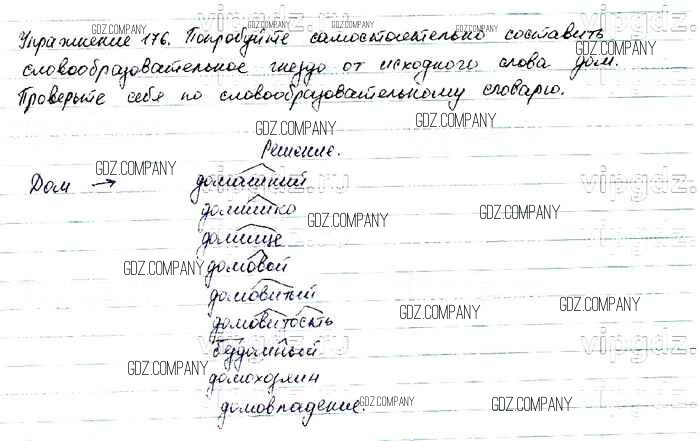 Упражнение 176. Попробуйте самостоятельно составить
словообразовательное гнездо от исходного слова дом.
Проверьте себя по словообразовательному словарю.
Решение.
Дом → домашний
домишко
домище
домовой
домовитый
домовитость
бездомный
домохозяин
домовладение.
vipgdz.ru
vipgdz.ru
vipgdz.
GDZ.COMPANY
GDZ.COMPANY
GDZ.COMPANY
GDZ.COMPANY
GDZ.COMPANY
GDZ.COMPANY
GDZ.COMPANY
GDZ.COMPANY
vipgdz.ru
vipgdz.
GDZ.COMPANY
GDZ.COMPANY
vipgdz.
GDZ.COMPANY
GDZ.COMPANY
GDZ.COMPANY
vipgdz.ru
vipgdz.
GDZ.COMPANY
GDZ.COMPANY
GDZ.COMPANY